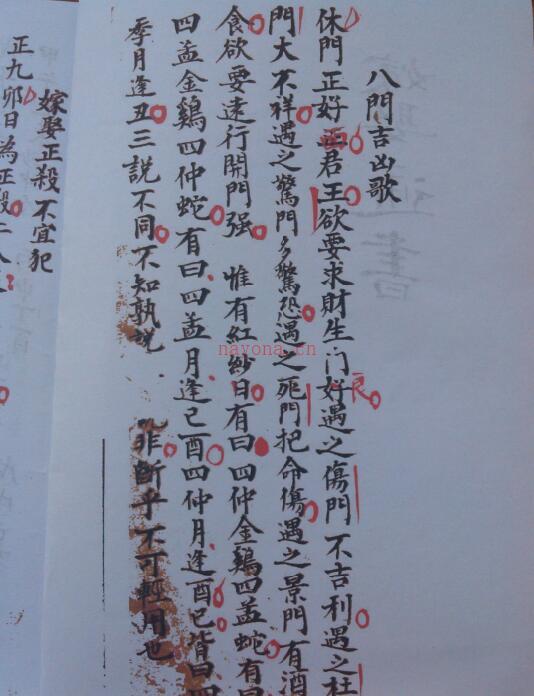 八門吉凶歌
休門正好面君王欲要求財生门好良遇之傷門不吉利遇之杜
門大不祥遇之驚門多驚恐遇之死門把命傷遇之景門有酒
食欲要速行開門强 惟有紅紗日有曰四仲金鷄四孟蛇有曰
四孟金鷄四仲蛇有曰四孟月逢已酉四仲月逢酉已皆曰四
季月逢丑三說不同不知孰說 非断乎不可輕用也
嫁娶正殺不宜犯
正九卯日為正殺二八
nayona.cn